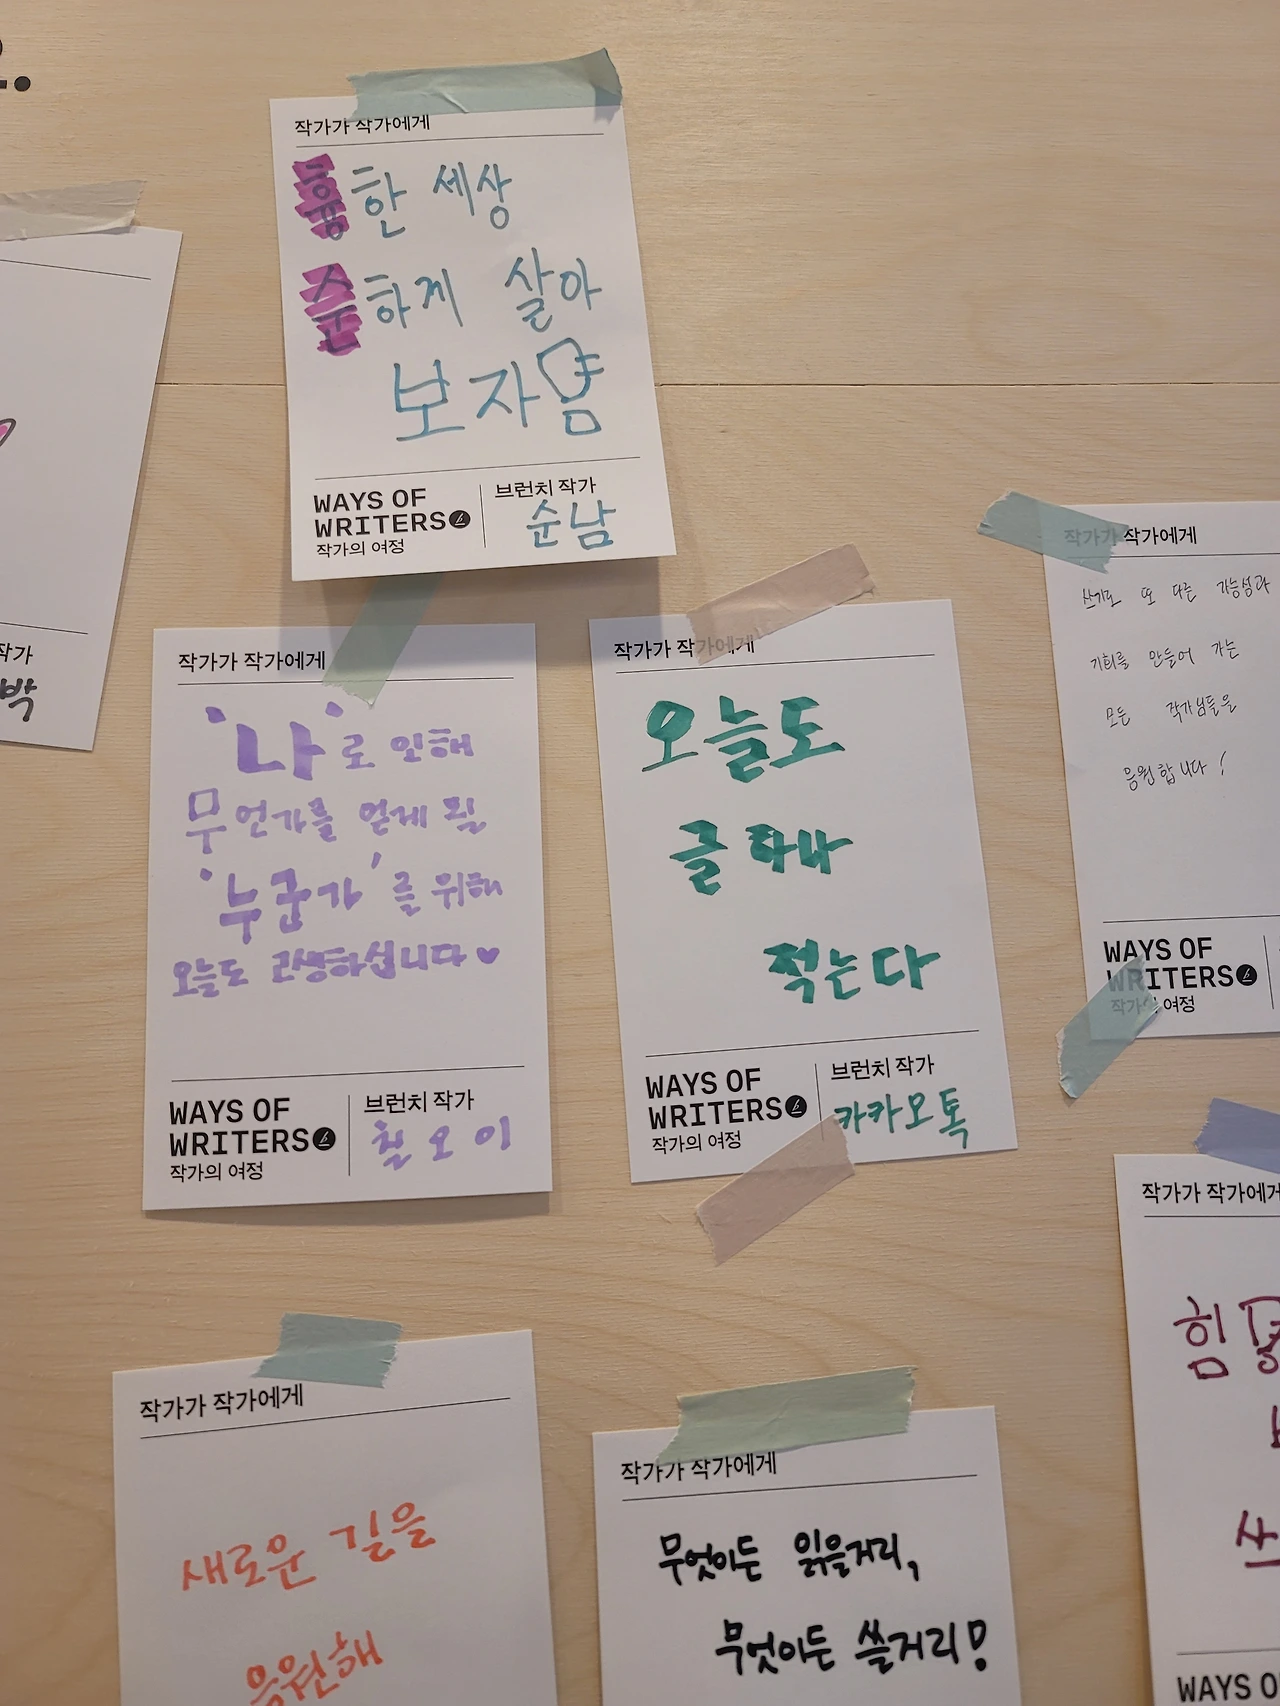 작가가 작가에게
흉한 세상
순하게 살아
보자
WAYS OF
WRITERS
작가의 여정
브런치 작가
순남
작가
박
작가가 작가에게
'나'로 인해
무언가를 얻게 될
'누군가'를 위해
오늘도 고생하십니다♥
WAYS OF
WRITERS
작가의 여정
브런치 작가
칠오이
작가가 작가에게
오늘도
글 하나
적는다
WAYS OF
WRITERS
작가의 여정
브런치 작가
카카오톡
작가가 작가에게
쓰기로 또 다른 가능성과
기회를 만들어 가는
모든 작가님들을
응원합니다!
WAYS OF
WRITERS
작가의 여정
작가가 작가에게
새로운 길을
응원해
작가가 작가에게
무엇이든 읽을거리,
무엇이든 쓸거리!
작가가 작가에게
힘
쓰
WAYS OF